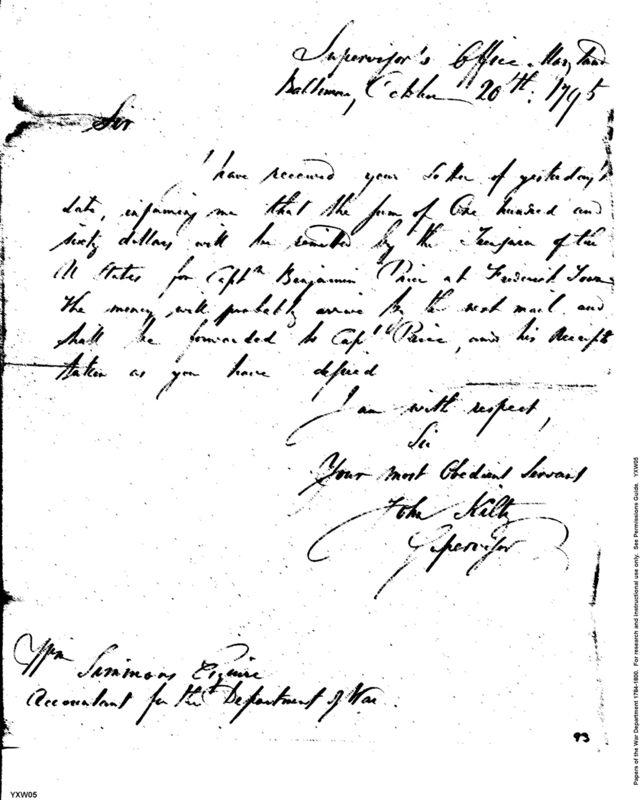 Supervisor's Office Maryland
Baltimore, October 20th: 1795
Sir
I have received your Letter of yesterday's
date, informing me that the sum of One hundred and
sixty dollars will be remitted by the Treasurer of the
U States for Captn Benjamin Price at Frederick Town
The money will probably arrive by the next mail, and
shall be forwarded to Capt Price, and his Receipts
taken as you have desired
I am with respect,
Sir
Your most Obedient Servant
John Kilty
Supervisor
Wm Simmons Esquire
Accountant for the Department of War.
93
YXW05
Papers of the War Department 1784-1800. For research and instructional use only. See Permissions Guide. YXW05